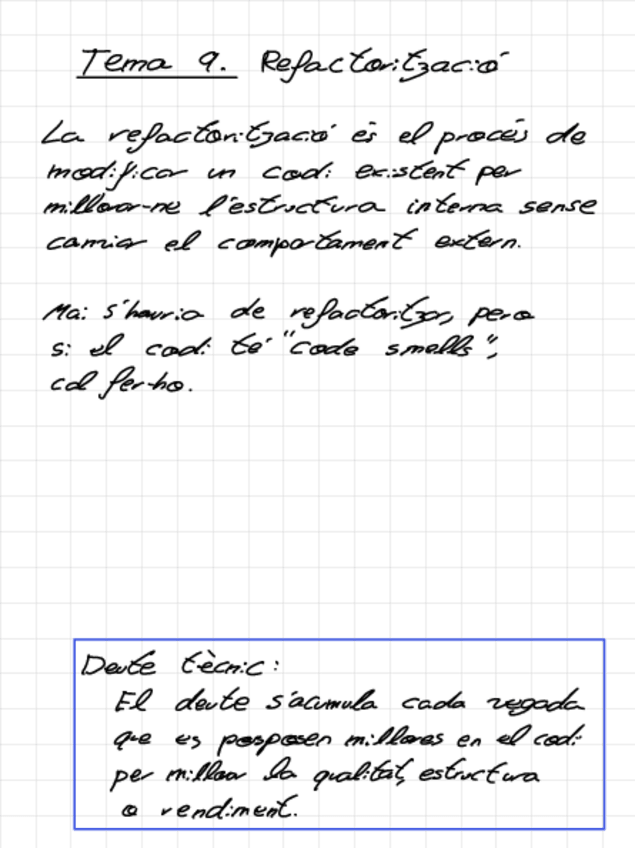 Tema 9. Refactorització
La refactorització és el procés de
modificar un codi existent per
millorar-ne l'estructura interna sense
canviar el comportament extern.
Mai s'hauria de refactoritzar, pero
si el codi té "code smells",
cal fer-ho.
Deute tècnic:
El deute s'acumula cada vegada
que es posposen millores en el codi
per millorar la qualitat, estructura
o rendiment.